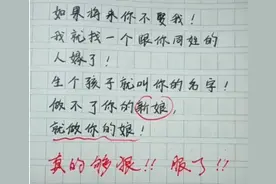 如果将来你不要我！
我就找一个跟你同姓的
人嫁了！
生个孩子就叫你的名字！
做不了你的新娘，
就做你的娘！
真的够狠!! 服了!!